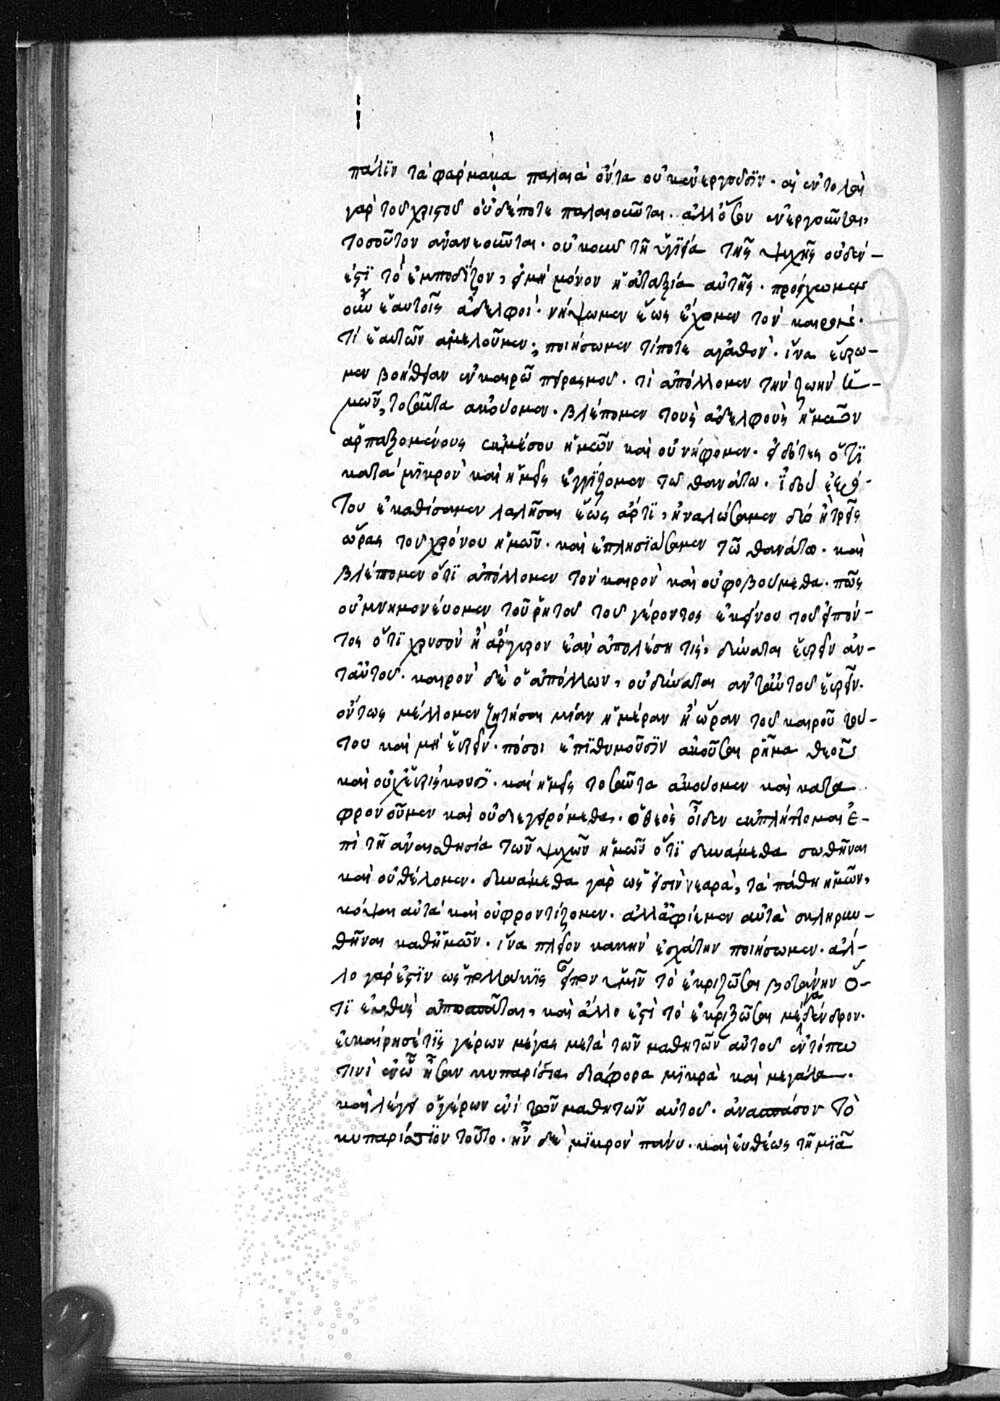 πάλϊν τὰ φάρμακα παλαιὰ ὄντα οὐκ ἐνεργοῦσϊν· αἱ ἐντολαὶ
γὰρ τοῦ χριστοῦ οὐδέποτε παλαιοῦνται· ἀλλ' ὅσον ἐνεργοῦνται,
τοσοῦτον ἀνανεοῦνται· οὐκοῦν τῆ ὑγϊεία τῆς ψυχῆς οὐδέν
ἐστϊ τὸ ἐμποδίζον, εἰμὴ μόνον ἡ ἀταξία αὐτῆς· πρόσχωμεν
οὖν ἑαυτοῖς ἀδελφοί· νήψωμεν ἕως ἔχομεν τὸν καιρόν·
τί ἑαυτῶν ἀμελοῦμεν; ποιήσωμεν τίποτε ἀγαθὸν· ἵνα εὕρω-
μεν βοήθειαν ἐν καιρῶ πειρασμοῦ· τί ἀπόλλομεν τὴν ζωὴν ἡ-
μῶν, τοσαῦτα ἀκούομεν· βλέπομεν τοὺς ἀδελφοὺς ἡμῶν
ἁρπαζομένους ἐκ μέσου ἡμῶν καὶ οὐ νήφομεν· εἰδότες ὅτϊ
κατὰ μϊκρὸν καὶ ἡμεῖς ἐγγίζομεν τῶ θανάτω· ἰδοὺ ἐξ ὅ-
του ἐκαθίσαμεν λαλῆσαι ἕως ἄρτϊ, ἀναλώσαμεν δύο ἢ τρεῖς
ὥρας τοῦ χρόνου ἡμῶν· καὶ ἐπλησϊάσαμεν τῶ θανάτω· καὶ
βλέπομεν ὅτϊ ἀπόλλομεν τὸν καιρὸν καὶ οὐ φοβούμεθα· πῶς
οὐ μνημονεύομεν τοῦ ῥητοῦ τοῦ γέροντος ἐκείνου τοῦ εἰπόν-
τος ὅτϊ χρυσὸν ἢ ἄργυρον ἐὰν ἀπολέση τὶς, δύναται εὑρεῖν ἀν-
ταὐτοῦ· καιρὸν δὲ ὁ ἀπόλλων, οὐ δύναται ἀνταὐτοῦ εὑρεῖν·
οὕτως μέλλομεν ζητῆσαι μίαν ἡμέραν ἢ ὥραν τοῦ καιροῦ τού-
του καὶ μὴ εὑρεῖν· πόσοι ἐπϊθυμοῦσϊν ἀκοῦσαι ῥῆμα θεοῦ
καὶ οὐχ εὑρίσκουσϊ· καὶ ἡμεῖς τοσαῦτα ἀκούομεν καὶ κατα
φρονοῦμεν καὶ οὐ διεγειρόμεθα· ὁ θεὸς οἶδεν ἐκπλήττομαι ἐ-
πὶ τῆ ἀναισθησία τῶν ψυχῶν ἡμῶν ὅτϊ δυνάμεθα σωθῆναι
καὶ οὐ θέλομεν· δυνάμεθα γὰρ ὡς εἰσὶν νεαρὰ, τὰ πάθη ἡμῶν,
κόψαι αὐτὰ καὶ οὐ φροντίζομεν· ἀλλἀφίεμεν αὐτὰ σκληρυν-
θῆναι καθἡμῶν· ἵνα πλεῖον κακὴν ἐσχάτην ποιήσωμεν· ἄλ-
λο γὰρ ἐστϊν ὡς πολλάκϊς εἶπον ὑμῖν τὸ ἐκριζῶσαι βοτάνην ὅ-
τϊ εὐθὺς ἀποσπᾶται, καὶ ἄλλο ἐστὶ τὸ ἐκριζῶσαι μέγα δένδρον·
εὐκαίρησέ τϊς γέρων μέγας μετὰ τῶν μαθητῶν αὐτοῦ ἐν τόπω
τινὶ ἐν ὧ ἦσαν κυπαρίσια διάφορα μϊκρὰ καὶ μεγάλα·
καὶ λέγει ὁ γέρων ἑνὶ τῶν μαθητῶν αὐτοῦ· ἀνάσπασον τὸ
κυπαρίσσϊον τοῦτο· ἦν δὲ μϊκρὸν πάνυ· καὶ εὐθέως τῆ μϊᾶ